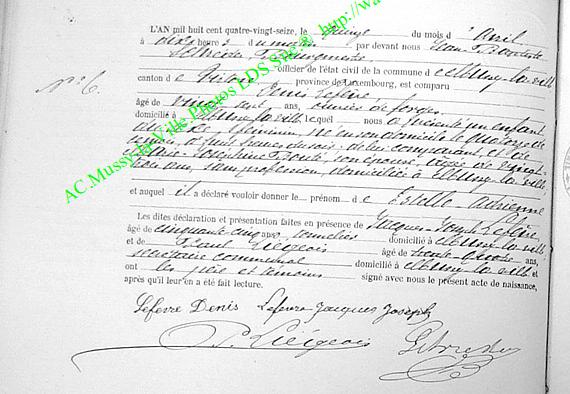 L'AN mil huit cent quatre-vingt-seize, le quinze du mois d'avril
à dix heures du matin par devant nous Jean Baptiste
officier de l'état civil de la commune de Mussy-la-ville
N° 6.
canton de Virton province de Luxembourg, est comparu
Denis Lefèvre
âgé de vingt ans, ouvrier de forges
domicilié à Mussy-la-ville Lequel nous a présenté un enfant
du sexe féminin, né en son domicile le quatorze de
ce mois, à huit heures du soir, de lui comparant et de
Marie Joséphine son épouse, âgée de vingt
ans, sans profession, domiciliée à Mussy-la-ville
et auquel il a déclaré vouloir donner le prénom de Estelle Adrienne
Les dites déclaration et présentation faites en présence de Jacques-Joseph Lefèvre
âgé de cinquante cinq ans, domicilié à Mussy-la-ville
et de Paul Liégeois âgé de trente ans,
secrétaire communal domicilié à Mussy-la-ville et
ont les père et témoins signé avec nous le présent acte de naissance,
après qu'il leur en a été fait lecture.
Lefevre Denis Lefevre Jacques Joseph
P. Liégeois
AC.Mussy-la-Ville Photos LDS Site:© http://w